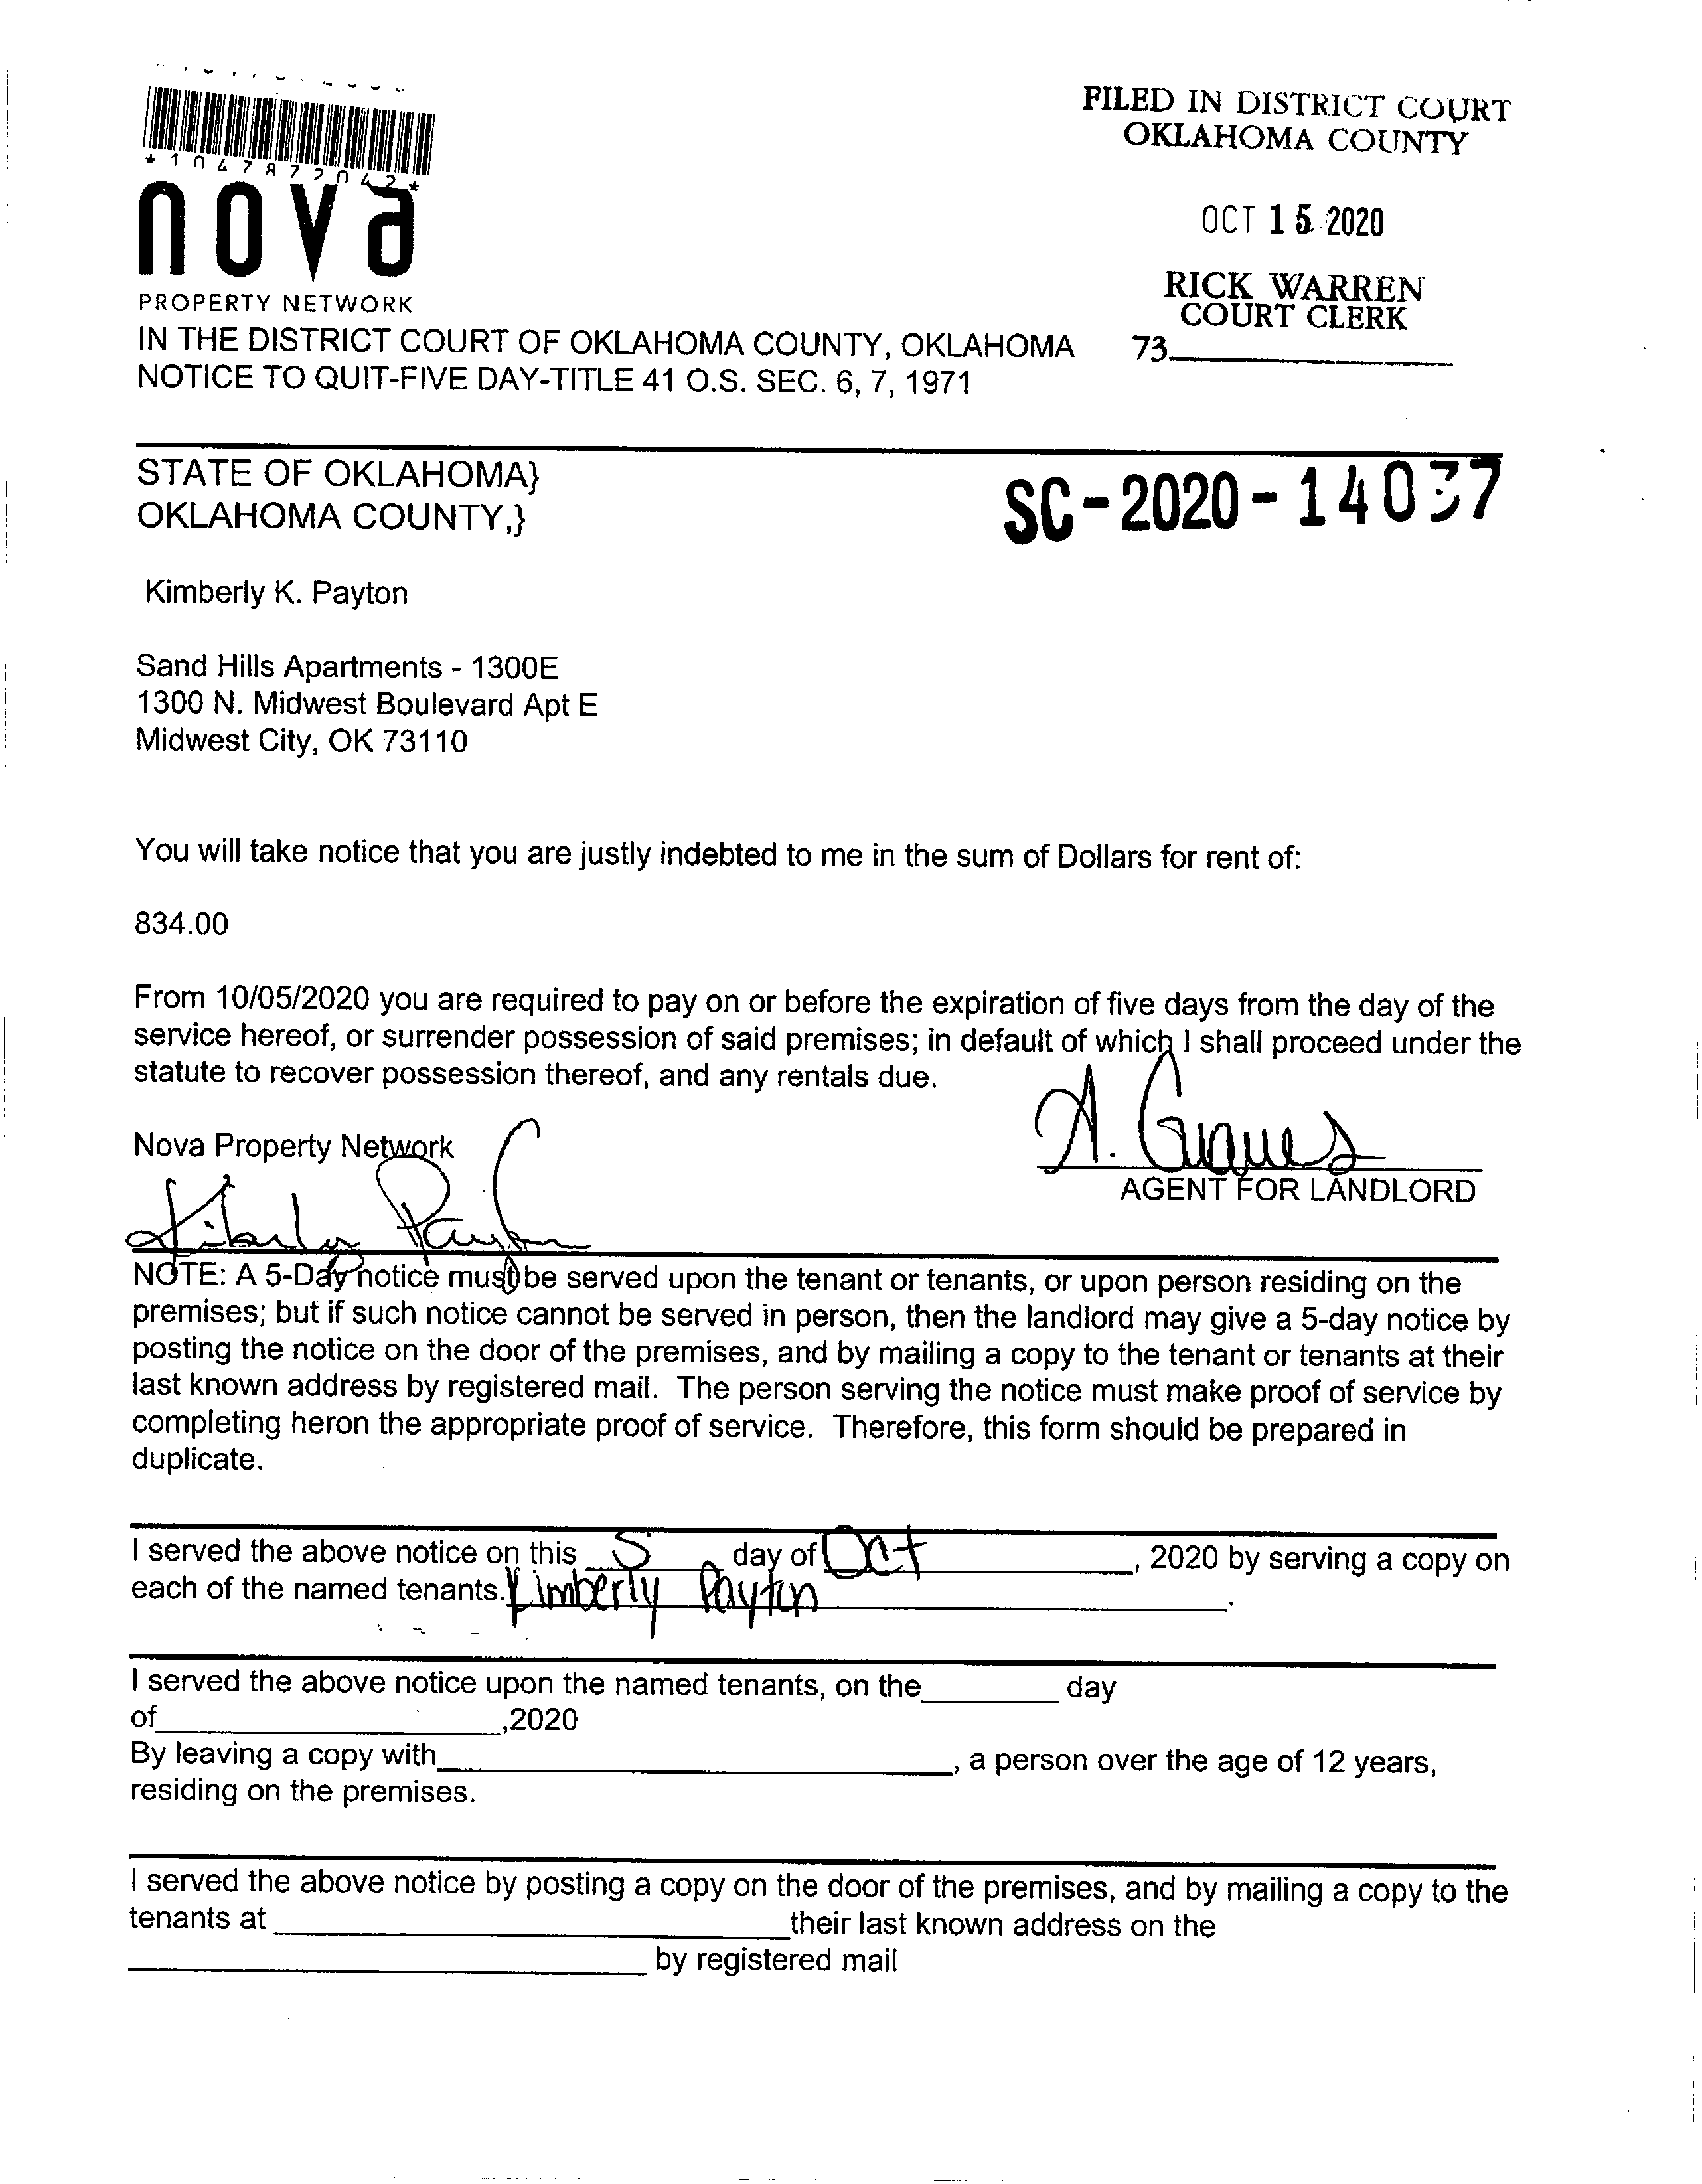 *1047872042*
nova
PROPERTY NETWORK
FILED IN DISTRICT COURT
OKLAHOMA COUNTY
OCT 15 2020
RICK WARREN
COURT CLERK
73
IN THE DISTRICT COURT OF OKLAHOMA COUNTY, OKLAHOMA
NOTICE TO QUIT-FIVE DAY-TITLE 41 O.S. SEC. 6, 7, 1971
STATE OF OKLAHOMA}
OKLAHOMA COUNTY,}
SC-2020-14037
Kimberly K. Payton
Sand Hills Apartments - 1300E
1300 N. Midwest Boulevard Apt E
Midwest City, OK 73110
You will take notice that you are justly indebted to me in the sum of Dollars for rent of:
834.00
From 10/05/2020 you are required to pay on or before the expiration of five days from the day of the
service hereof, or surrender possession of said premises; in default of which I shall proceed under the
statute to recover possession thereof, and any rentals due.
Nova Property Network
AGENT FOR LANDLORD
NOTE: A 5-Day notice must be served upon the tenant or tenants, or upon person residing on the
premises; but if such notice cannot be served in person, then the landlord may give a 5-day notice by
posting the notice on the door of the premises, and by mailing a copy to the tenant or tenants at their
last known address by registered mail. The person serving the notice must make proof of service by
completing heron the appropriate proof of service. Therefore, this form should be prepared in
duplicate.
I served the above notice on this 5 day of Oct, 2020 by serving a copy on
each of the named tenants. Kimberly Payton.
I served the above notice upon the named tenants, on the day
of ,2020
By leaving a copy with , a person over the age of 12 years,
residing on the premises.
I served the above notice by posting a copy on the door of the premises, and by mailing a copy to the
tenants at their last known address on the
by registered mail